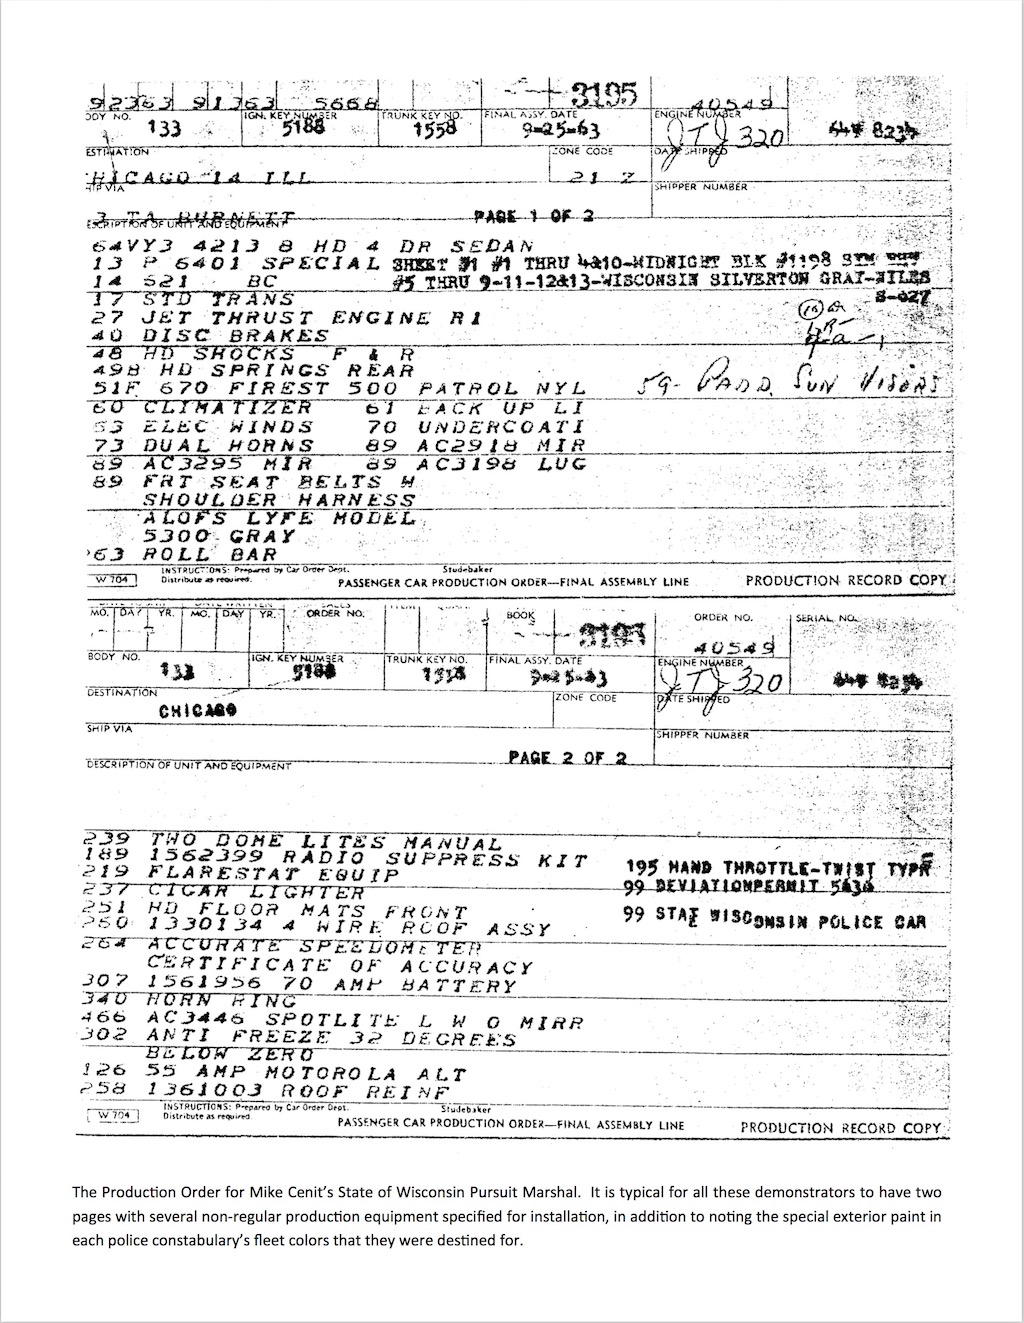 92363 91363 5668 3195 40549
ODY NO. 133 IGN. KEY NUMBER 5188 TRUNK KEY NO. 1558 FINAL ASSY. DATE 9-25-63 ENGINE NUMBER JTJ 320 64V 8234
ESTINATION ZONE CODE DATE SHIPPED
HICAGO 14 ILL 21 Z
HIP VIA SHIPPER NUMBER
TA BURNETT PAGE 1 OF 2
ESCRIPTION OF UNIT AND EQUIPMENT
64VY3 4213 8 HD 4 DR SEDAN
13 P 6401 SPECIAL SHEET #1 #1 THRU 4&10-MIDNIGHT BLK #1198
14 S21 BC #5 THRU 9-11-12&13-WISCONSIN SILVERTON GRAY-NILES
17 STD TRANS 8-027
27 JET THRUST ENGINE R1
40 DISC BRAKES
48 HD SHOCKS F & R
49B HD SPRINGS REAR
51F 670 FIREST 500 PATROL NYL 59- PADD. SUN VISORS
60 CLIMATIZER 61 BACK UP LI
53 ELEC WINDS 70 UNDERCOATI
73 DUAL HORNS 89 AC2918 MIR
89 AC3295 MIR 89 AC3198 LUG
89 FRT SEAT BELTS W
SHOULDER HARNESS
ALOFS LYFE MODEL
5300 GRAY
63 ROLL BAR
INSTRUCTIONS: Prepared by Car Order Dept. Studebaker
W 704 Distribute as required. PASSENGER CAR PRODUCTION ORDER—FINAL ASSEMBLY LINE PRODUCTION RECORD COPY
MO. DAY YR. MO. DAY YR. ORDER NO. BOOK 3195 ORDER NO. SERIAL NO.
40549
BODY NO. 133 IGN. KEY NUMBER 5188 TRUNK KEY NO. 1558 FINAL ASSY. DATE 9-25-63 ENGINE NUMBER JTJ 320 64V 8234
DESTINATION ZONE CODE DATE SHIPPED
CHICAGO
SHIP VIA SHIPPER NUMBER
PAGE 2 OF 2
DESCRIPTION OF UNIT AND EQUIPMENT
239 TWO DOME LITES MANUAL
189 1562399 RADIO SUPPRESS KIT
219 FLARESTAT EQUIP 195 HAND THROTTLE-TWIST TYPE
237 CIGAR LIGHTER 99 DEVIATIONPERMIT 5636
251 HD FLOOR MATS FRONT 99 STAE WISCONSIN POLICE CAR
260 1330134 4 WIRE ROOF ASSY
264 ACCURATE SPEEDOMETER
CERTIFICATE OF ACCURACY
307 1561956 70 AMP BATTERY
340 HORN RING
466 AC3446 SPOTLITE L W O MIRR
302 ANTI FREEZE 32 DEGREES
BELOW ZERO
126 55 AMP MOTOROLA ALT
258 1361003 ROOF REINF
INSTRUCTIONS: Prepared by Car Order Dept. Studebaker
W 704 Distribute as required PASSENGER CAR PRODUCTION ORDER—FINAL ASSEMBLY LINE PRODUCTION RECORD COPY
The Production Order for Mike Cenit’s State of Wisconsin Pursuit Marshal. It is typical for all these demonstrators to have two
pages with several non-regular production equipment specified for installation, in addition to noting the special exterior paint in
each police constabulary’s fleet colors that they were destined for.